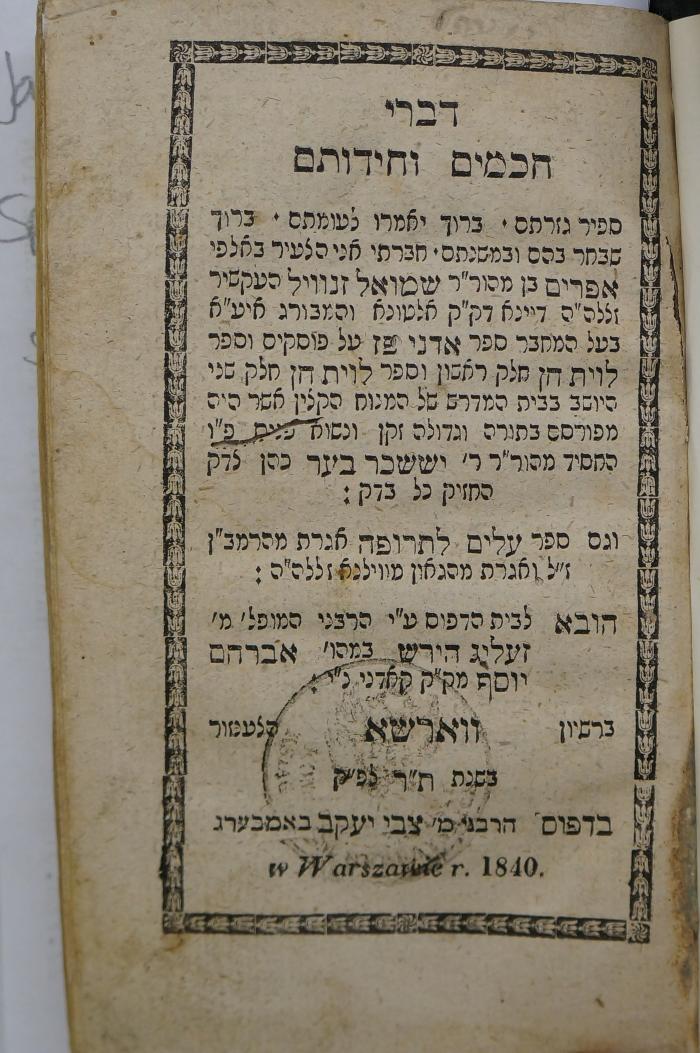 דברי
חכמים וחידותם
ספיר גזרתם · ברוך יאמרו לעומתם · ברוך
שבחר בהם ובמשנתם · חברתי אני הצעיר באלפי
אפרים בן מהור"ר שמואל זנוויל העקשיר
זללה"ה דיינא דק"ק אלטונא והמבורג איע"א
בעל המחבר ספר אדני פז על פוסקים וספר
לוית חן חלק ראשון וספר לוית חן חלק שני
היושב בבית המדרש של המנוח הקצין אשר היה
מפורסם בתורה וגדולה זקן ונשוא פנים פ"ו
החסיד מהור"ר ר' יששכר בער כהן לדק
החזיק כל בדק :
וגם ספר עלים לתרופה אגרת מהרמב"ן
ז"ל ואגרת מהגאון מווילנא זללה"ה :
הובא לבית הדפוס ע"י הרבני המופל' מ'
זעליג הירש במהו' אברהם
יוסף מק"ק קאדני נ"י :
ברשיון ווארשא הצענזור
בשנת ת"ר לפ"ק
בדפוס הרבני מ' צבי יעקב באמבערג
w Warszawie r. 1840.